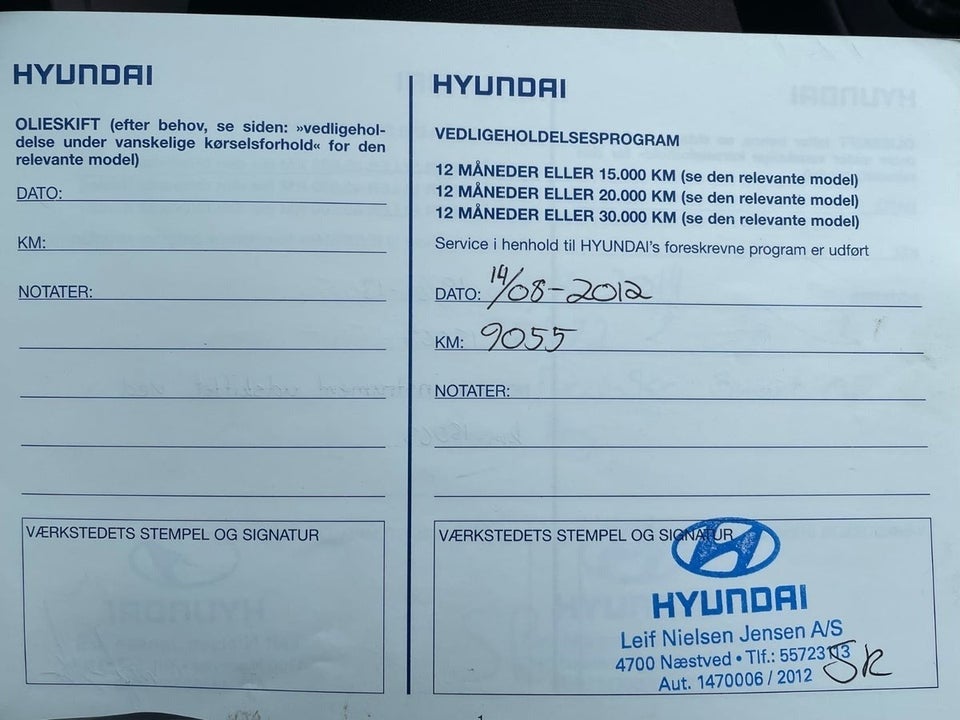 HYUNDAI
OLIESKIFT (efter behov, se siden: »vedligehol-
delse under vanskelige kørselsforhold« for den
relevante model)
DATO:
KM:
NOTATER:
VÆRKSTEDETS STEMPEL OG SIGNATUR
HYUNDAI
VEDLIGEHOLDELSESPROGRAM
12 MÅNEDER ELLER 15.000 KM (se den relevante model)
12 MÅNEDER ELLER 20.000 KM (se den relevante model)
12 MÅNEDER ELLER 30.000 KM (se den relevante model)
Service i henhold til HYUNDAI's foreskrevne program er udført
DATO: 14/08-2012
KM: 9055
NOTATER:
VÆRKSTEDETS STEMPEL OG SIGNATUR
HYUNDAI
Leif Nielsen Jensen A/S
4700 Næstved • Tlf.: 55723113
Aut. 1470006 / 2012